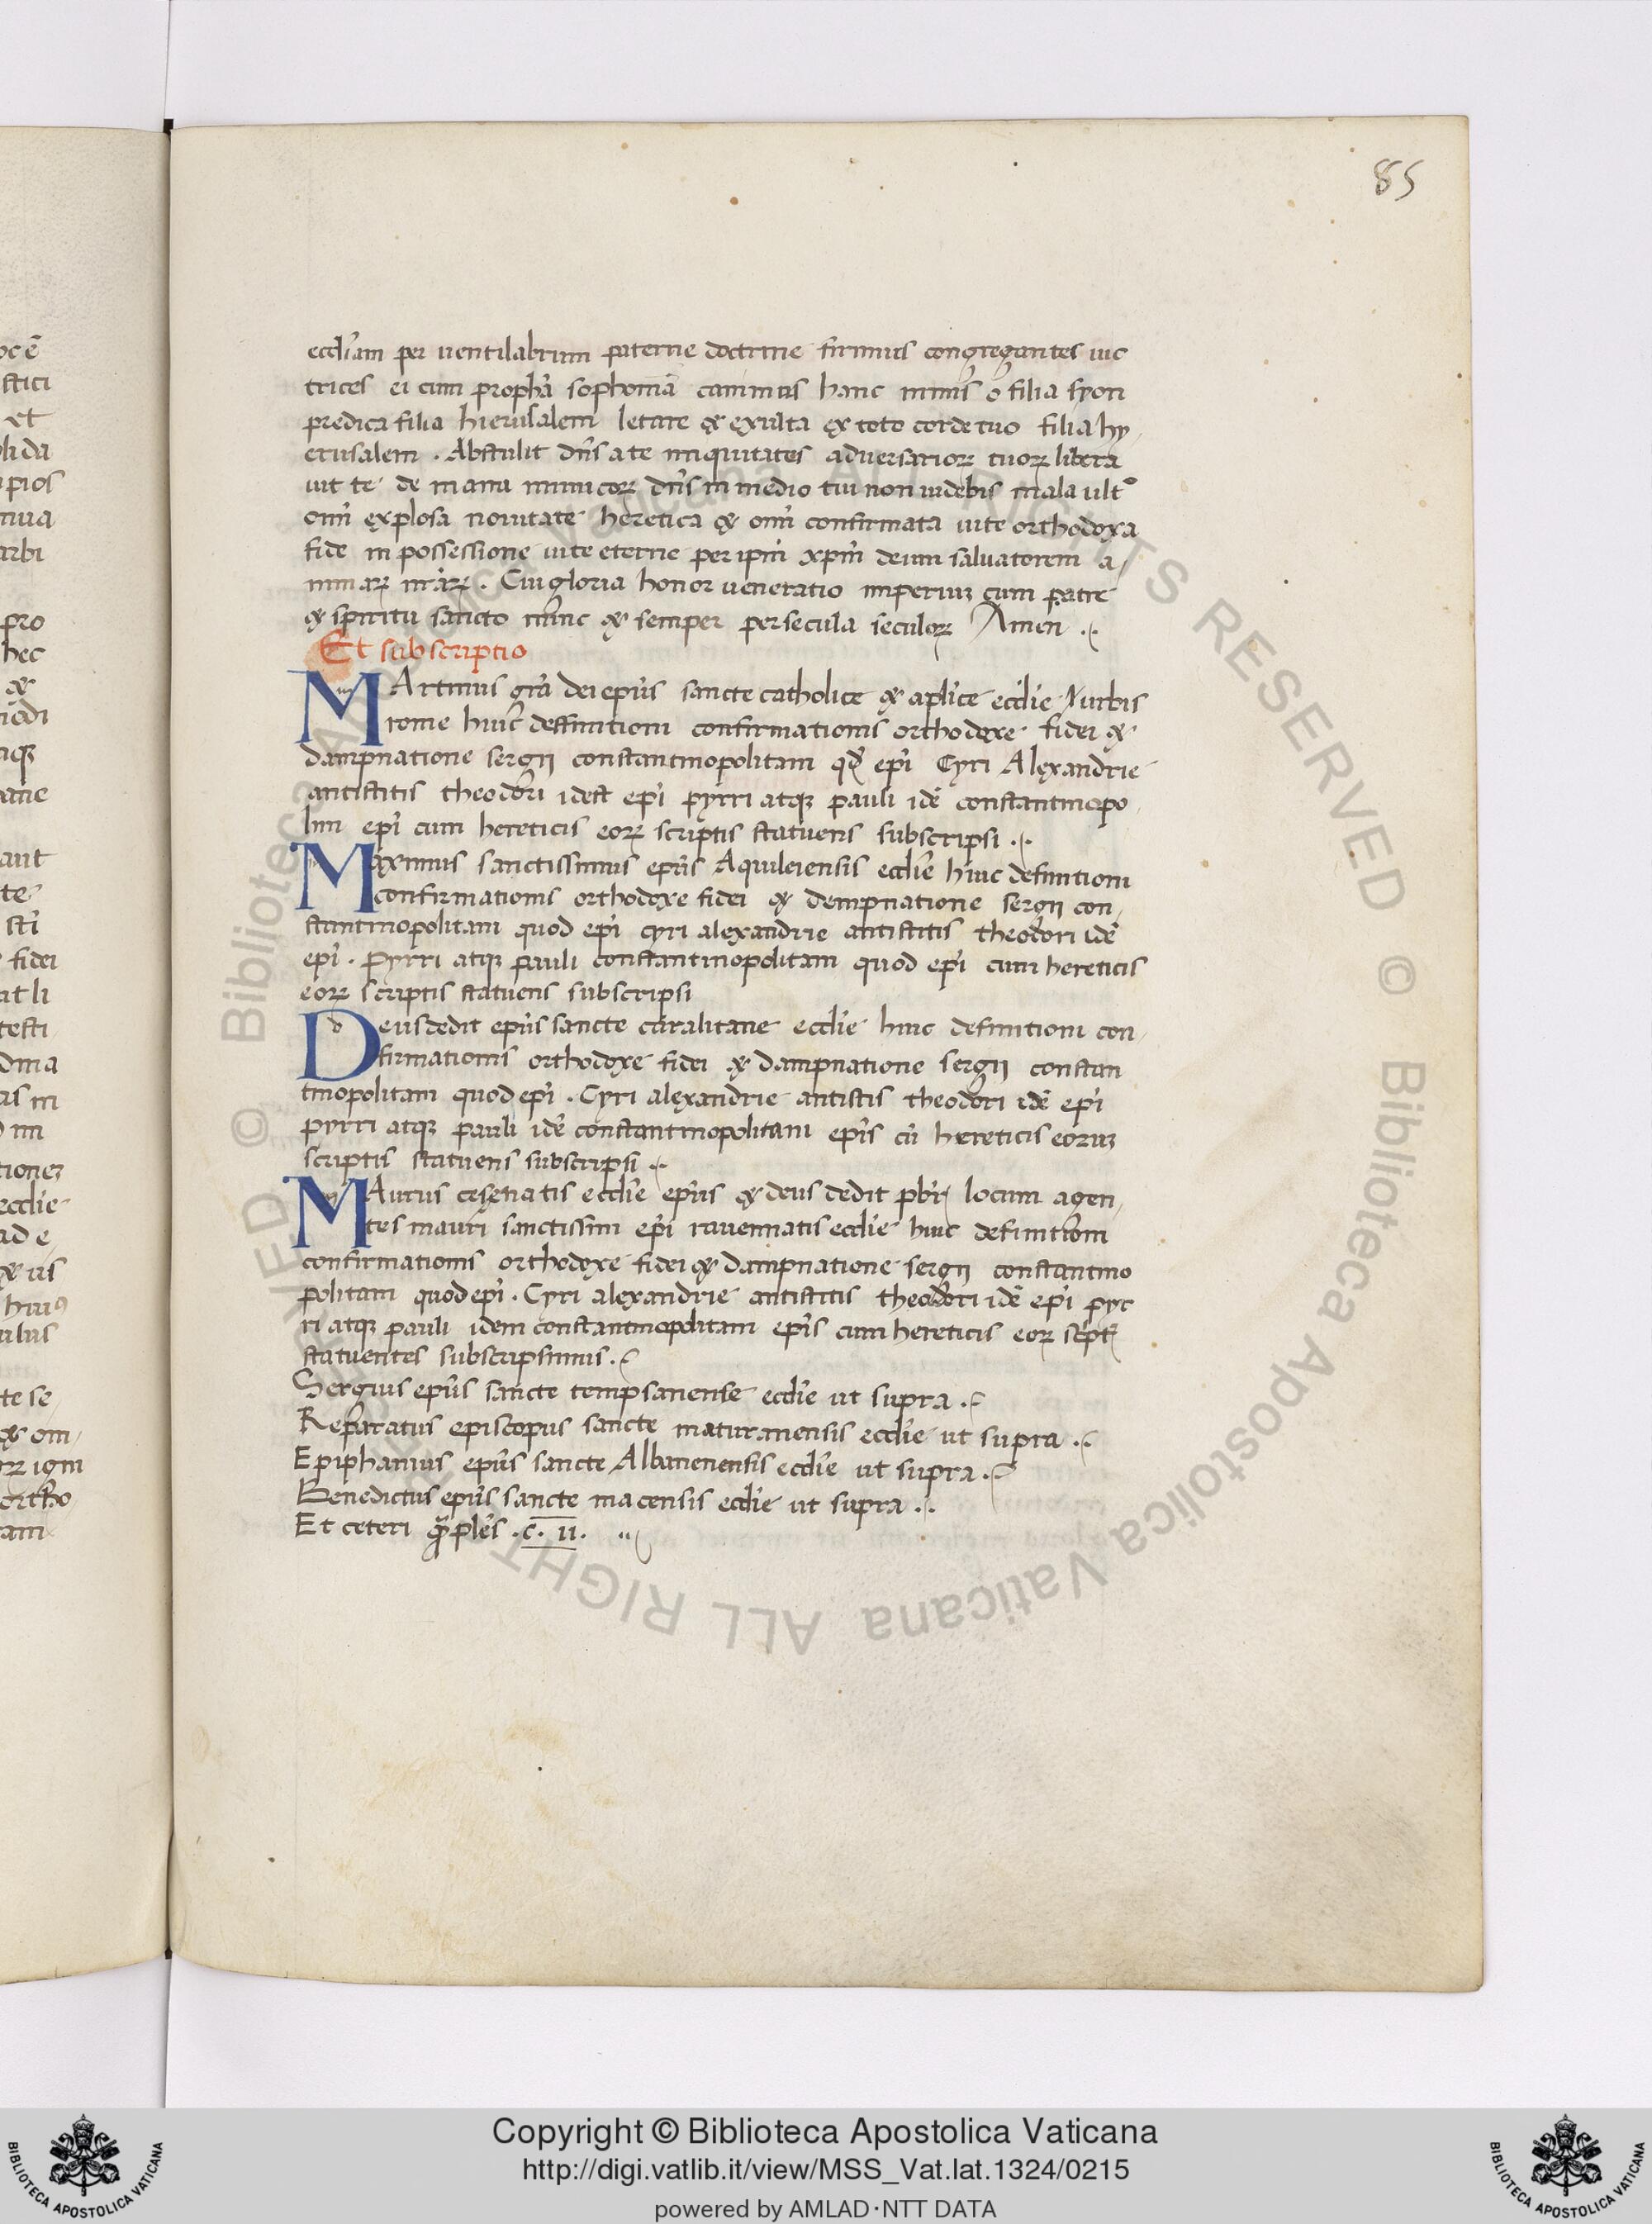 85
eccl̅iam per uentilabrum paterne doctrine firmius congregantes uic
trices ei cum propha̅ sophonia̅ canimus hanc nimis o filia syon
predica filia hierusalem letare & exulta ex toto corde tuo filia hy
erusalem . Abstulit dn̅s a te iniquitates aduersarioꝝ tuoꝝ libera
uit te de manu inimicoꝝ dn̅s in medio tui non uidebis mala ultͦ
omi̅ explosa nouitate heretica & omi̅ confirmata uite orthodoxa
fide in possessione uite eterne per ipm̅ xpm̅ deum saluatorem a
nimaꝝ nr̅aꝝ . Cui gloria honor ueneratio imperiuꝫ cum patre
& spiritu sancto nunc & semper per secula seculoꝝ Amen .
Et subscriptio
MArtinus gr̅a dei ep̅us sancte catholice & aplice eccl̅ie urbis
rome huic deffinitioni confirmationis orthodoxe fidei &
dampnatione sergij constantinopolitani qd̅ ep̅i Cyri Alexandrie
antistitis theodori idest ep̅i pyrri atqꝫ pauli ide̅ constantinopo
lim ep̅i cum hereticis eoꝝ scriptis statuens subscripsi .
Maximus sanctissimus ep̅us Aquileiensis eccl̅ie huic definitioni
confirmationis orthodoxe fidei & dempnatione sergij con
stantinopolitani quod ep̅i cyri alexandrie antistitis theodori ide̅
ep̅i . Pyrri atqꝫ pauli constantinopolitani quod ep̅i cum hereticis
eoꝝ scriptis statuens subscripsi
Deusdedit ep̅us sancte caralitane eccl̅ie huic definitioni con
firmationis orthodoxe fidei & dampnatione sergij constan
tinopolitani quod ep̅i . Cyri alexandrie antistis theodori ide̅ ep̅i
pyrri atqꝫ pauli ide̅ constantinopolitani ep̅is cu̅ hereticis eoruꝫ
scriptis statuens subscripsi .
MAurus cesenatis eccl̅ie ep̅us & deus dedit pbr̅i locum agen
tes mauri sanctissimi ep̅i rauennatis eccl̅ie huic definitioni
confirmationis orthodoxe fidei & dampnatione sergij constantino
politani quod ep̅i . Cyri alexandrie antistitis theodori ide̅ ep̅i pyr
ri atqꝫ pauli idem constantinopolitani ep̅is cum hereticis eoꝝ
statuentes subscripsimus .
Sergius ep̅us sancte tempsanense eccl̅ie ut supra .
Reparatus episcopus sancte maturanensis eccl̅ie ut supra .
Epiphanius ep̅us sancte Albanenensis eccl̅ie ut supra .
Benedictus ep̅us sancte macensis eccl̅ie ut supra .
Et ceteri . c . ii .
Copyright © Biblioteca Apostolica Vaticana
http://digi.vatlib.it/view/MSS_Vat.lat.1324/0215
powered by AMLAD·NTT DATA
BIBLIOTECA APOSTOLICA VATICANA
BIBLIOTECA APOSTOLICA VATICANA
© Biblioteca Apostolica Vaticana ALL RIGHTS RESERVED © Biblioteca Apostolica Vaticana ALL RIGHTS RESERVED